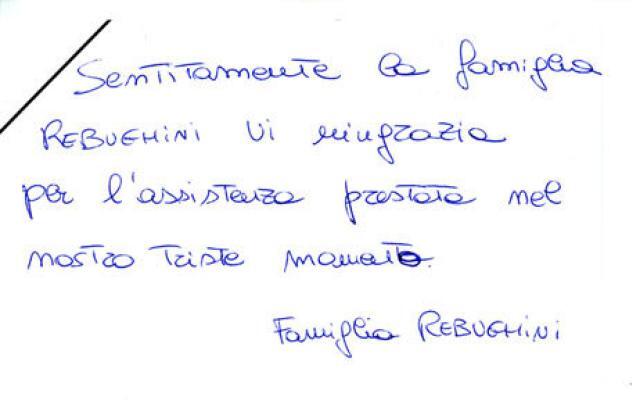 Sentitamente la famiglia
REBUGHINI vi ringrazia
per l'assistenza prestata nel
nostro triste momento.
Famiglia REBUGHINI